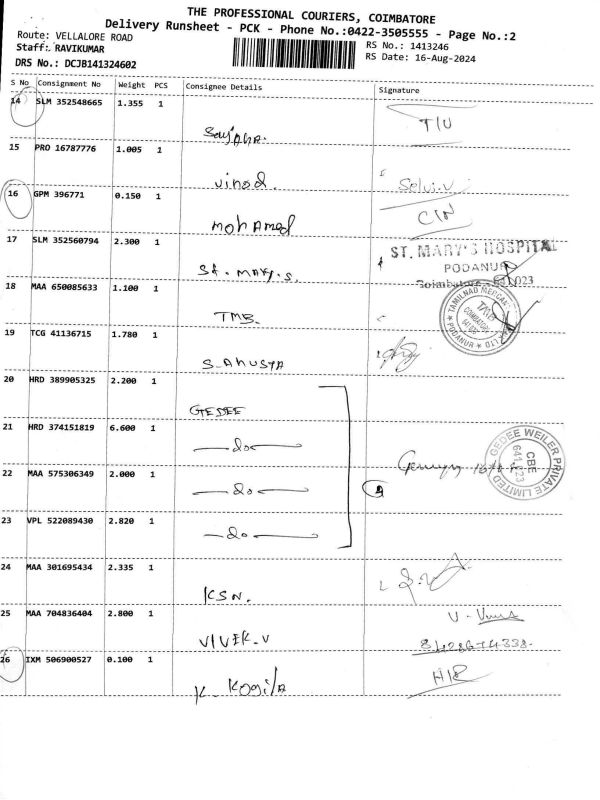 THE PROFESSIONAL COURIERS, COIMBATORE
Delivery Runsheet - PCK - Phone No.:0422-3505555 - Page No.:2
Route: VELLALORE ROAD
RS No.: 1413246
Staff: RAVIKUMAR
RS Date: 16-Aug-2024
DRS No.: DCJB141324602
S No Consignment No Weight PCS Consignee Details Signature
14 SLM 352548665 1.355 1
Sujana. T/U
15 PRO 16787776 1.005 1
vinod. Selvi.V
16 GPM 396771 0.150 1 C/N
mohamed
17 SLM 352560794 2.300 1 ST. MARY'S HOSPITAL
PODANUR
St. mary.s.
18 MAA 650085633 1.100 1
TMB.
19 TCG 41136715 1.780 1
S.Anusya
20 HRD 389905325 2.200 1
GEDEE
21 HRD 374151819 6.600 1
-do-
GEDEE WEILER PRIVATE LIMITED
CBE
22 MAA 575306349 2.000 1
-do-
23 VPL 522089430 2.820 1
-do-
24 MAA 301695434 2.335 1
KSN.
25 MAA 704836404 2.800 1
VIVEK.V
26 IXM 506900527 0.100 1
K. Kogila